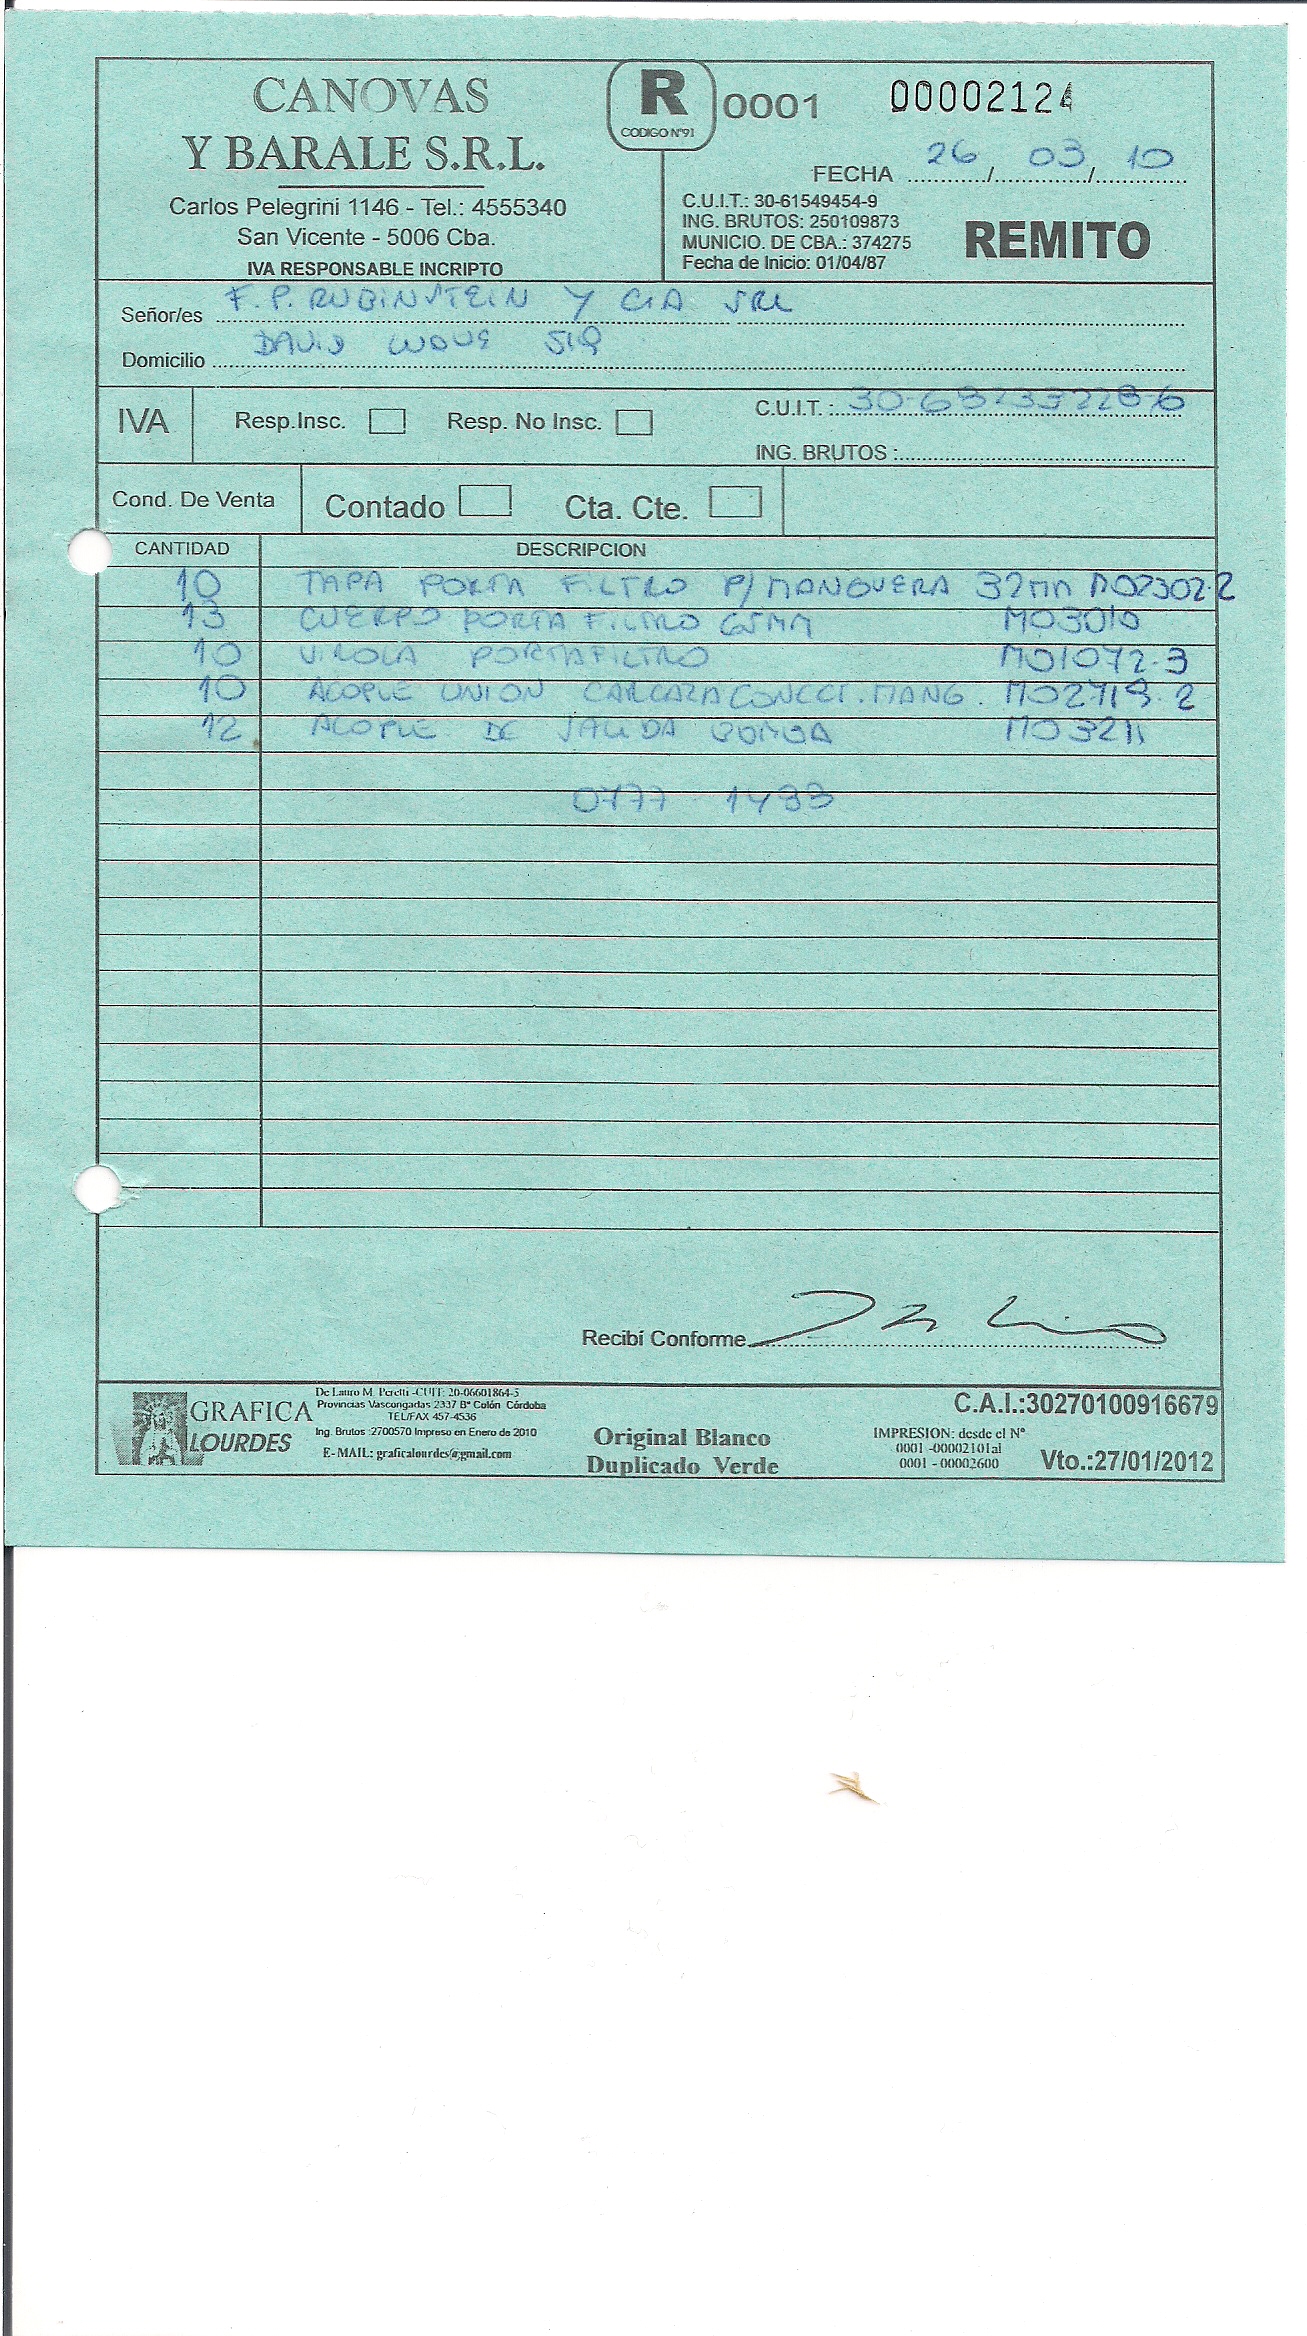 CANOVAS
Y BARALE S.R.L.
Carlos Pelegrini 1146 - Tel.: 4555340
San Vicente - 5006 Cba.
IVA RESPONSABLE INCRIPTO
R
CODIGO Nº91
0001 00002124
FECHA 26/03/10
C.U.I.T.: 30-61549454-9
ING. BRUTOS: 250109873
MUNICIO. DE CBA.: 374275
Fecha de Inicio: 01/04/87
REMITO
Señor/es F. P. RUBINSTEIN Y CIA SRL
Domicilio DAVID LUQUE 519
IVA Resp.Insc. Resp. No Insc.
C.U.I.T. :
ING. BRUTOS :
Cond. De Venta Contado Cta. Cte.
CANTIDAD DESCRIPCION
10 TAPA PORTA FILTRO P/MANGUERA 32MM M02302-2
13 CUERPO PORTA FILTRO 65MM M03010
10 VIROLA PORTAFILTRO M01072-3
10 ACOPLE UNION CARCAZA CONECT. MANG. M02719-2
12 ACOPLE DE SALIDA BOMBA M03211
0777 1433
Recibí Conforme
GRAFICA
LOURDES
De Lauro M. Peretti -CUIT: 20-06601864-5
Provincias Vascongadas 2337 Bº Colón Córdoba
TEL/FAX 457-4536
Ing. Brutos :2700570 Impreso en Enero de 2010
E-MAIL: graficalourdes@gmail.com
Original Blanco
Duplicado Verde
C.A.I.:30270100916679
IMPRESION: desde el Nº
0001 -00002101al
0001 - 00002600
Vto.:27/01/2012